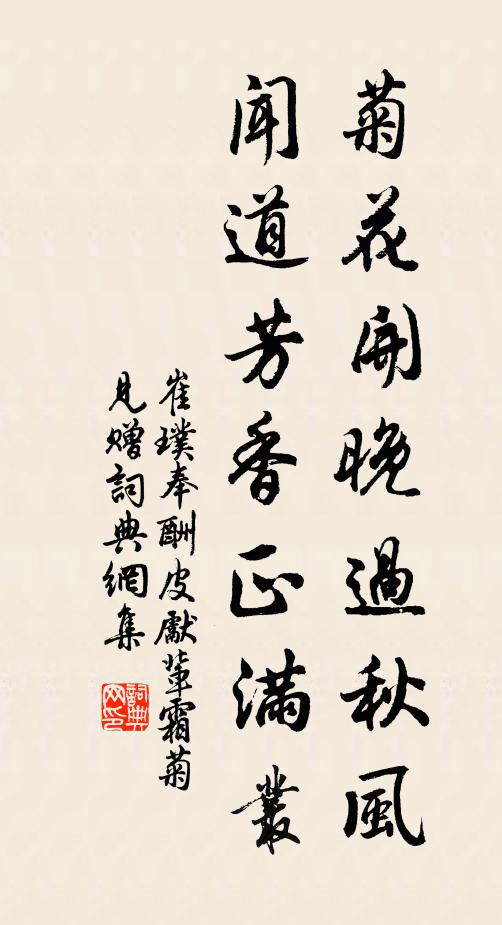 菊花開晚過秋風
聞道芳香正滿叢
崔璞奉酬皮獻輩霜菊
見贈詞典網集
詞典網印